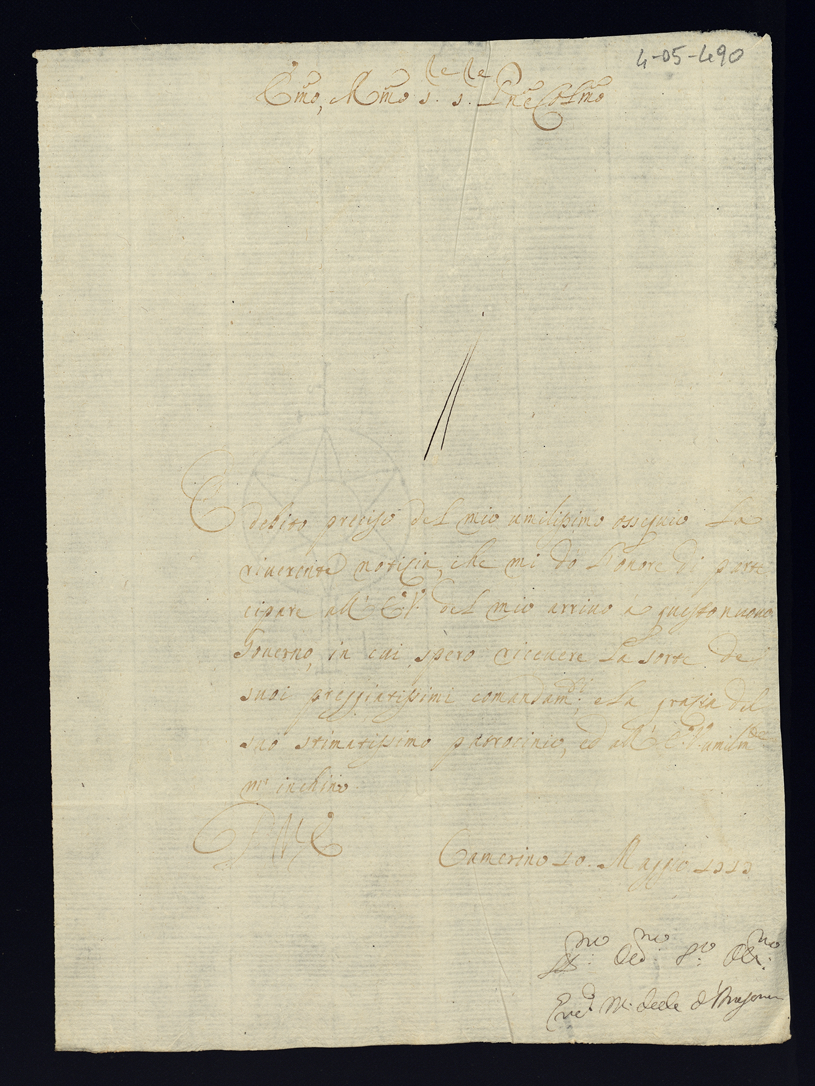 4-05-490
Emo, Rmo s.r s.r Pne Colmo
E debito preciso del mio umilissimo ossequio la
riverente notizia, che mi do l'onore di parte
cipare all' E.V. del mio arrivo a questo nuovo
Governo, in cui spero ricevere la sorte de
suoi preggiatissimi comandam.ti, e la grazia del
suo stimatissimo patrocinio, ed all' E.V. umilm.te
m' inchino
D V E
Camerino 10. Maggio
mo mo